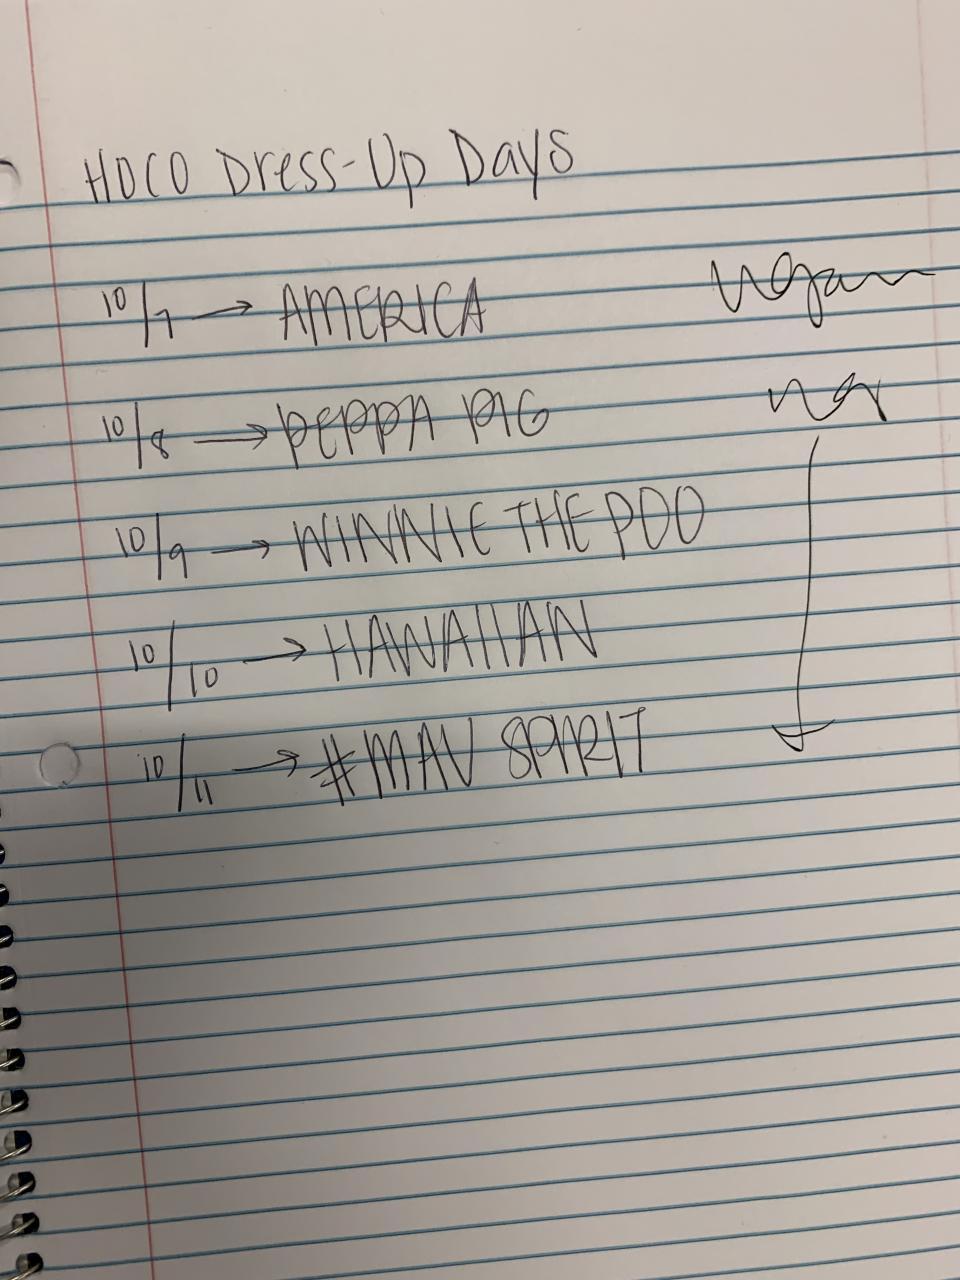 HOCO Dress-Up Days
10/7 → AMERICA
10/8 → PEPPA PIG
10/9 → WINNIE THE POO
10/10 → HAWAIIAN
10/11 → #MAV SPIRIT